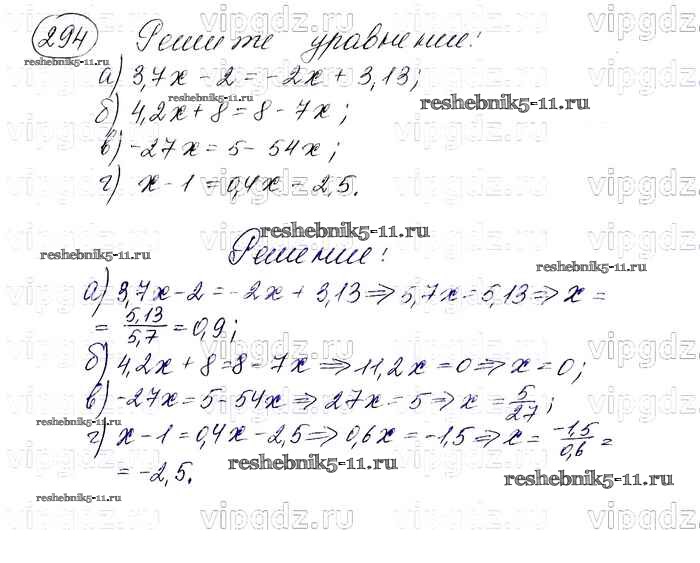 294 Решите уравнение:
reshebnik5-11.ru
а) 3,7x - 2 = -2x + 3,13;
reshebnik5-11.ru
б) 4,2x + 8 = 8 - 7x;
reshebnik5-11.ru
в) -27x = 5 - 54x;
г) x - 1 = 0,4x - 2,5.
vipgdz.ru
reshebnik5-11.ru
Решение:
reshebnik5-11.ru
reshebnik5-11.ru
а) 3,7x - 2 = -2x + 3,13 ⇒ 5,7x = 5,13 ⇒ x =
= 5,13/5,7 = 0,9;
б) 4,2x + 8 = 8 - 7x ⇒ 11,2x = 0 ⇒ x = 0;
в) -27x = 5 - 54x ⇒ 27x = 5 ⇒ x = 5/27;
reshebnik5-11.ru
г) x - 1 = 0,4x - 2,5 ⇒ 0,6x = -1,5 ⇒ x = -1,5/0,6 =
= -2,5.
reshebnik5-11.ru
reshebnik5-11.ru
reshebnik5-11.ru
vipgdz.ru